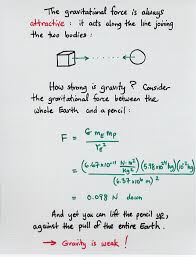 The gravitational force is always
attractive : it acts along the line joining
the two bodies :
How strong is gravity ? Consider
the gravitational force between the
whole Earth and a pencil :
F = G mE mp / rE²
= (6.67×10⁻¹¹ N·m²/kg²)(5.98×10²⁴ kg)(10⁻² kg) / (6.37×10⁶ m)²
= 0.098 N down
And yet you can lift the pencil UP,
against the pull of the entire Earth.
→ Gravity is weak !